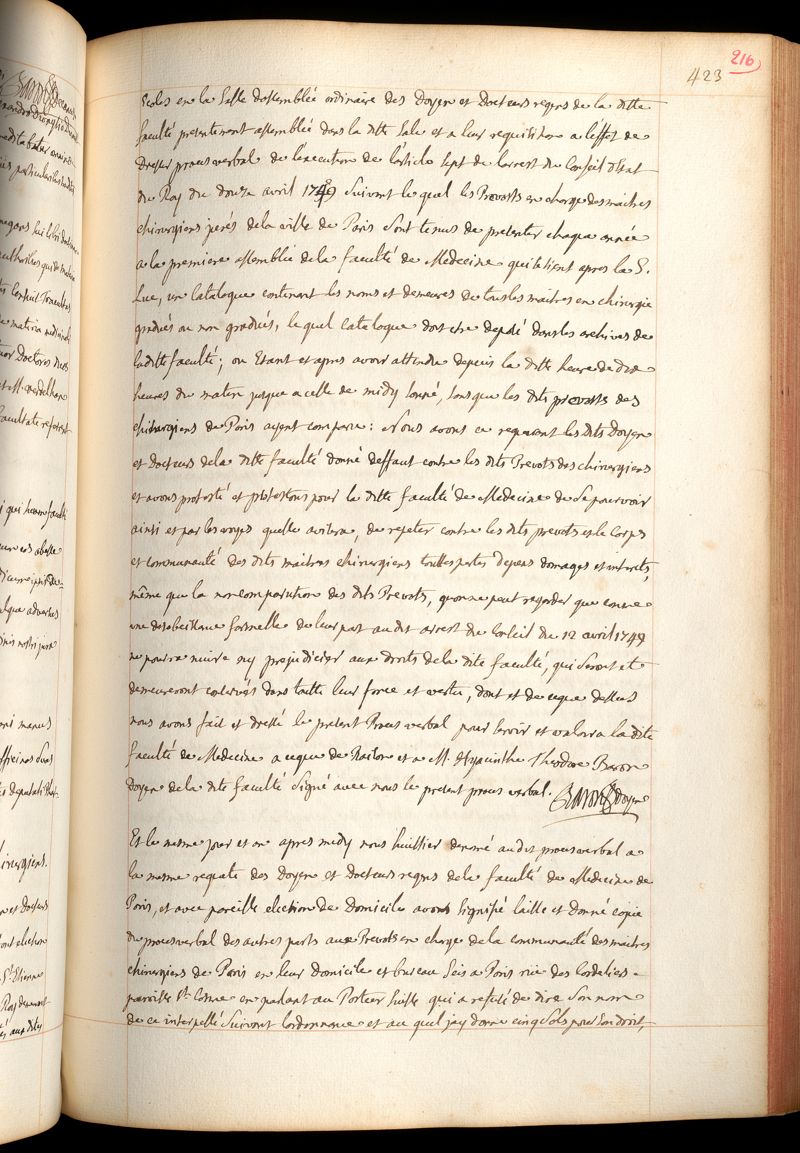 216
423
Ecoles en la Salle dassemblée ordinaire des Doyen et Docteurs regens de la ditte
faculté presentement assemblée dans la ditte Sale et a leur requisition a leffet de
Dresser procus verbal de l'execution de l'article Sept de larrest du Conseil d'Estat
du Roy du douze avril 1749 Suivant le quel les Prevosts en charge des maitres
chirurgiens jurés de la ville de Paris Sont tenus de presenter chaque année
a la premiere assemblée de la faculté de Medecine qui se tient apres la S.
Luc, un Catalogue contenant les noms et demeures de tous les maitres en chirurgie
gradués ou non gradués, le quel Catalogue doit etre deposé dans les archives de
laditte faculté; ou Etant et apres avoir attendu depuis la ditte heure de dix
heures du matin jusque a celle de midy Sonné, Sans que les dits prevosts des
chirurgiens de Paris ayent comparu: Nous avons ce requerant les Dits Doyen
et Docteurs de la ditte faculté donné deffaut contre les dits Prevots des chirurgiens
et avons protesté et protestons pour la ditte faculté de Medecine de Se pourvoir
ainsi et par les voyes quelle avisera, de repeter contre les dits prevots et le Corps
et communauté des dits maitres chirurgiens touttes pertes depens domages et interets,
même que la noncomparution des dits Prevots, quon ne peut regarder que comme
une desobeissance formelle de leur part au dit arrest du Conseil du 12 avril 1749
ne pourra nuire ny prejudicier aux droits de la dite faculté, qui Seront et
demeureront conservés dans toutte leur force et vertu, dont et de ce que dessus
nous avons fait et dressé le present Procus verbal pour Servir et valoir a la dite
faculté de Medecine a ce que de Raison et a M. Hyacinthe Theodore Baron
Doyen de la dite faculté Signé avec nous le present procus verbal. Baron Doyen
Et le meme jour et an apres midy nous huissier denomé au dit procus verbal a
la meme requete des Doyen et Docteurs regens de la faculté de Medecine de
Paris, et avec pareille election de Domicile avons Signifié laissé et donné copie
du procus verbal des autres parts aux Prevots en charge de la communauté des maitres
chirurgiens de Paris en leur domicile et bureau Scis a Paris ruë des Cordeliers
paroisse St. Cosme en parlant au Portier Suisse qui a refusé de dire Son nom
de ce interpellé Suivant lordonnance et au quel jay donné cinq Sols pour Son droit,